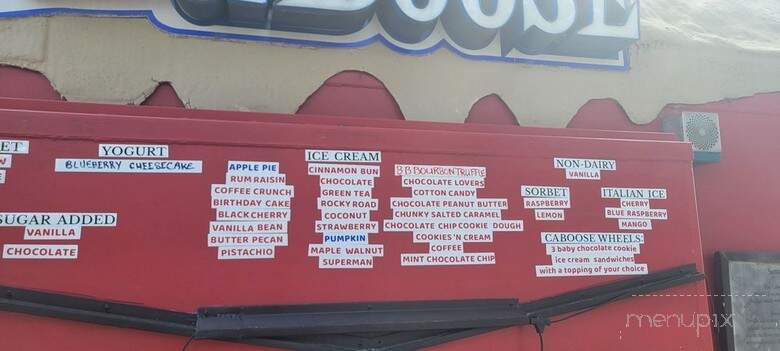 BOOSE
ET
YOGURT
BLUEBERRY CHEESECAKE
SUGAR ADDED
VANILLA
CHOCOLATE
ICE CREAM
APPLE PIE
RUM RAISIN
COFFEE CRUNCH
BIRTHDAY CAKE
BLACK CHERRY
VANILLA BEAN
BUTTER PECAN
PISTACHIO
CINNAMON BUN
CHOCOLATE
GREEN TEA
ROCKY ROAD
COCONUT
STRAWBERRY
PUMPKIN
MAPLE WALNUT
SUPERMAN
BB BOURBON TRUFFLE
CHOCOLATE LOVERS
COTTON CANDY
CHOCOLATE PEANUT BUTTER
CHUNKY SALTED CARAMEL
CHOCOLATE CHIP COOKIE DOUGH
COOKIES 'N CREAM
COFFEE
MINT CHOCOLATE CHIP
NON-DAIRY
VANILLA
SORBET
RASPBERRY
LEMON
ITALIAN ICE
CHERRY
BLUE RASPBERRY
MANGO
CABOOSE WHEELS
3 baby chocolate cookie
ice cream sandwiches
with a topping of your choice
menupix